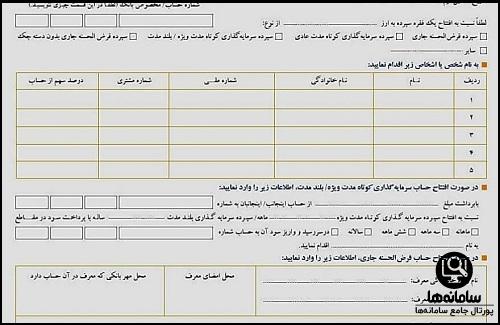 شماره حساب/ مخصوص بانک (لطفاً در این قسمت چیزی ننویسید.)
لطفاً نسبت به افتتاح یک فقره سپرده به ارز از نوع:
سپرده قرض الحسنه جاری سپرده سرمایه‌گذاری کوتاه مدت عادی سپرده سرمایه‌گذاری کوتاه مدت ویژه / بلند مدت سپرده قرض الحسنه جاری بدون دسته چک
سایر
به نام شخص یا اشخاص زیر اقدام نمایید:
ردیف نـام نـام خـانوادگی شماره ملـی شماره مشتری درصد سهم از حساب
۱
۲
۳
۴
۵
در صورت افتتاح حساب سرمایه‌گذاری کوتاه مدت ویژه/ بلند مدت، اطلاعات زیر را وارد نمایید:
بابرداشت مبلغ از حساب اینجانب/ اینجانبان به شماره
نسبت به افتتاح سپرده سرمایه‌گذاری کوتاه مدت ویژه ماهه/ سرمایه گذاری بلند مدت ساله با پرداخت سود در مقـاطع
ماهانه سه ماهه شش ماهه سالانه در سررسید و واریز سود آن به حساب شماره
به نام اقدام نمایید.
در صورت افتتاح حساب قرض الحسنه جاری، اطلاعات زیر را وارد نمایید:
معرف: محل امضای معرف محل مهر بانکی که معرف در آن حساب دارد
معرف:
سامانه‌ها
پورتال جامع سامانه‌ها